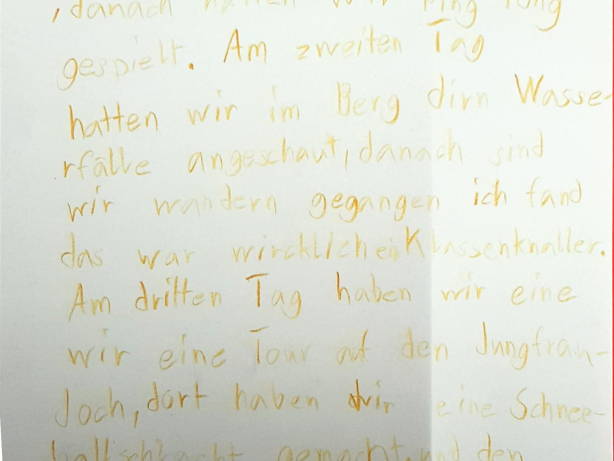 , danach hatten wir Ping Pong
gespielt. Am zweiten Tag
hatten wir im Berg dirn Wasse-
rfälle angeschaut, danach sind
wir wandern gegangen ich fand
das war wircklich ein Klassenknaller.
Am dritten Tag haben wir eine
wir eine Tour auf den Jungfrau-
Joch, dort haben wir eine Schnee-
ballschlacht gemacht und den